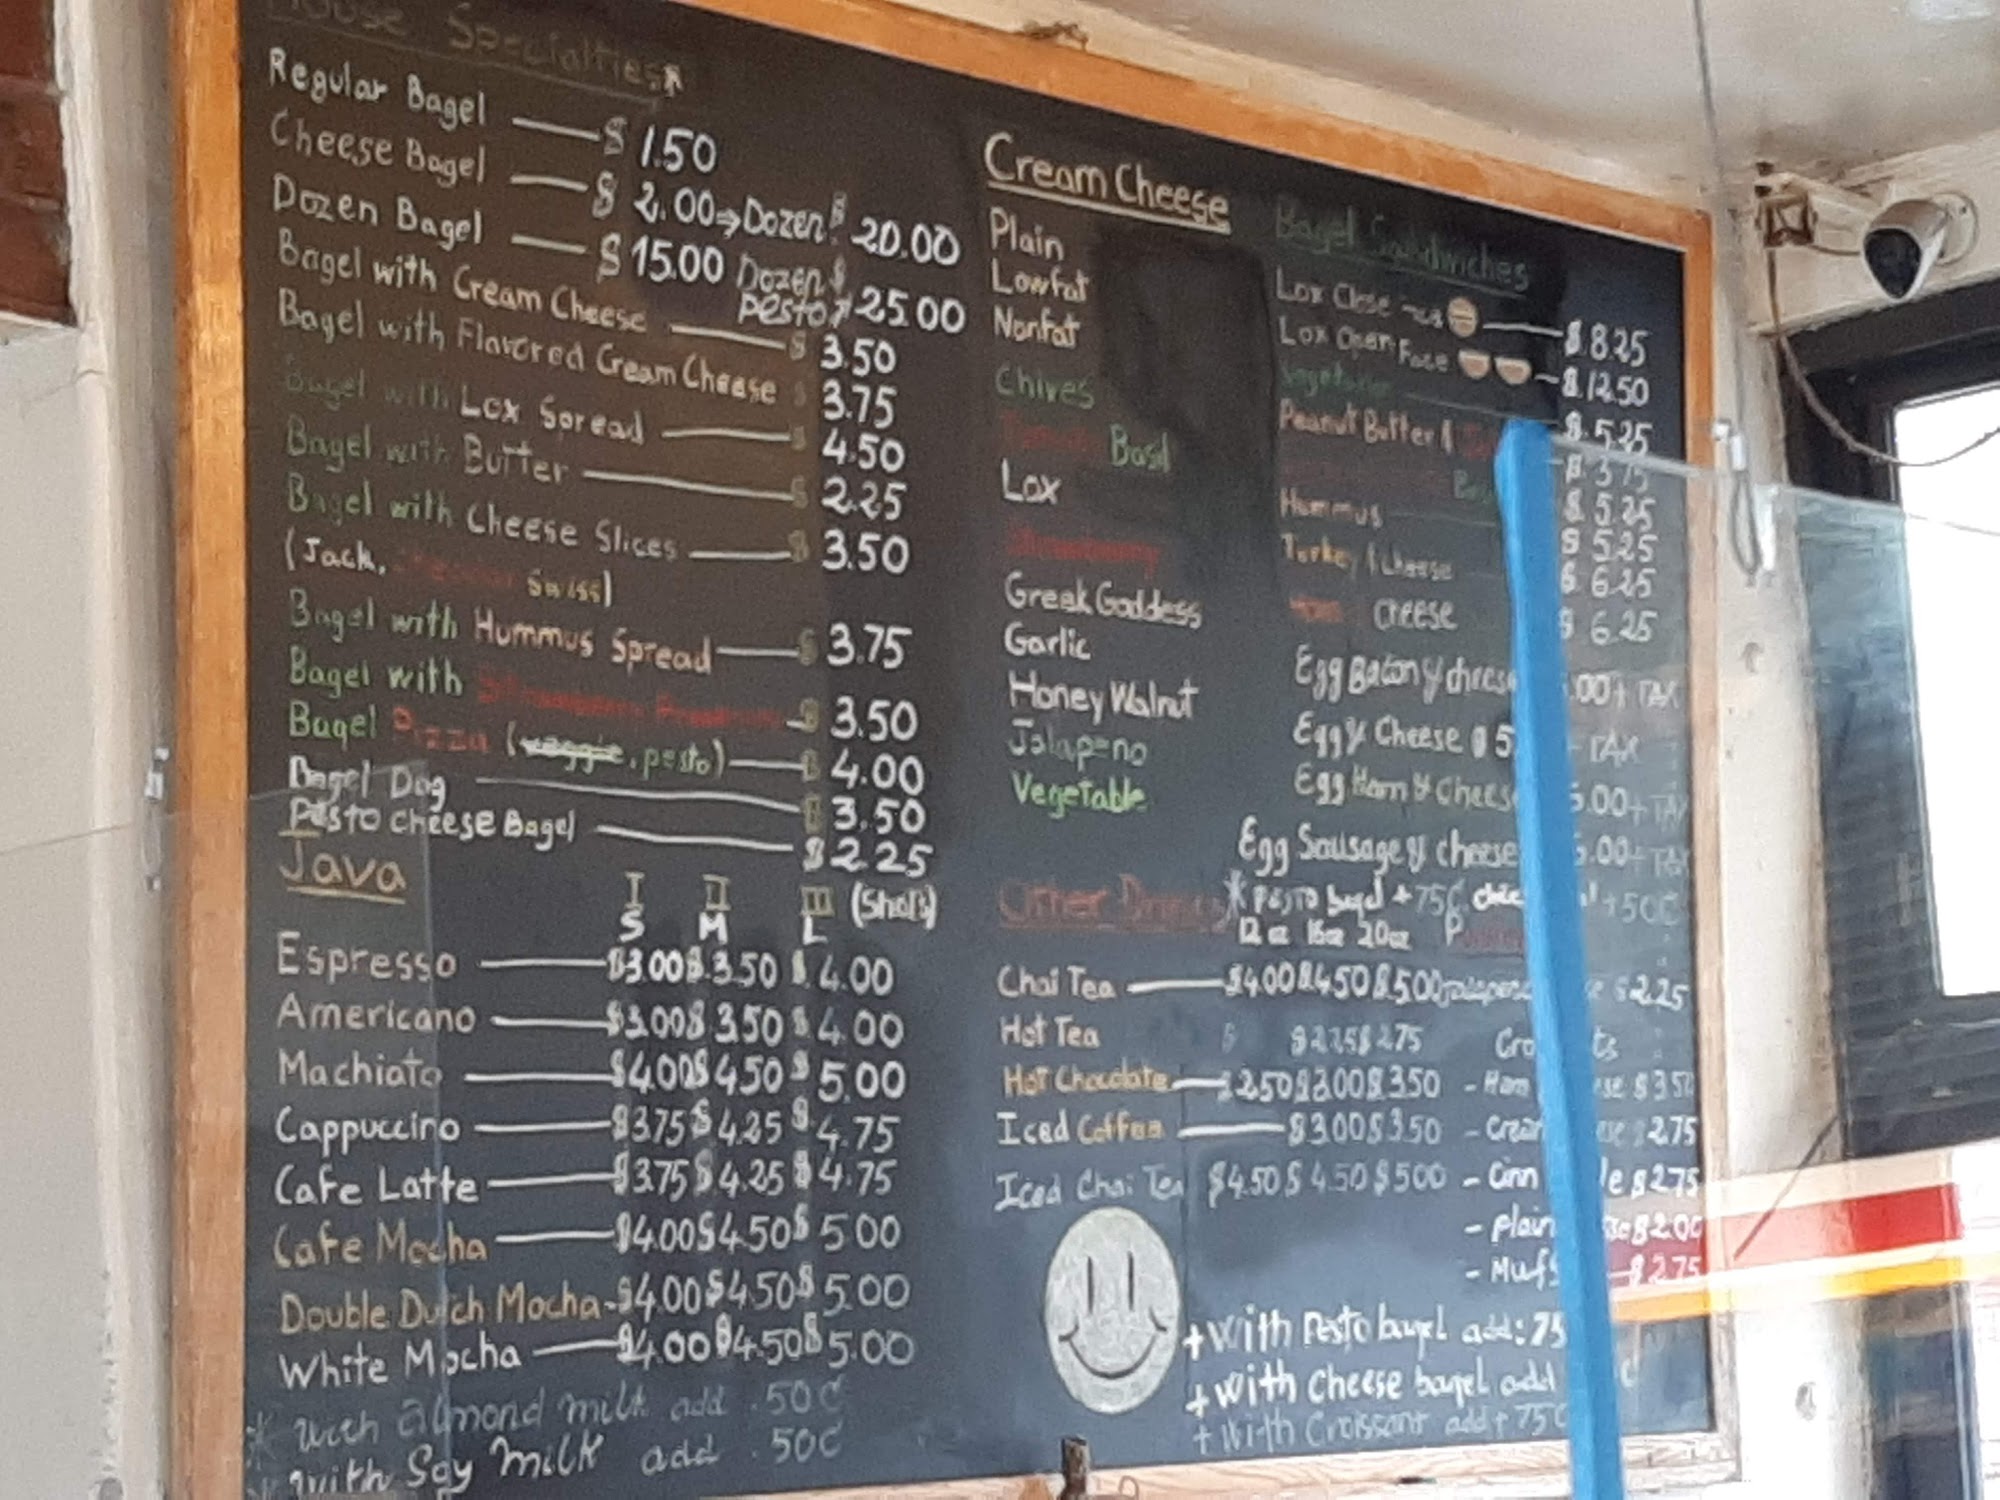 House Specialties*
Regular Bagel $ 1.50
Cheese Bagel $ 2.00 ⇒ Dozen: $ 20.00
Dozen Bagel $ 15.00 Dozen $
Pesto 25.00
Bagel with Cream Cheese $ 3.50
Bagel with Flavored Cream Cheese $ 3.75
Bagel with Lox Spread $ 4.50
Bagel with Butter $ 2.25
Bagel with Cheese Slices $ 3.50
(Jack, Swiss)
Bagel with Hummus Spread $ 3.75
Bagel with $ 3.50
Bagel Pizza (veggie, pesto) $ 4.00
Bagel Dog $ 3.50
Pesto cheese Bagel $ 2.25
Java
I II III (Shots)
S M L
Espresso $3.00 $3.50 $4.00
Americano $3.00 $3.50 $4.00
Machiato $4.00 $4.50 $5.00
Cappuccino $3.75 $4.25 $4.75
Cafe Latte $3.75 $4.25 $4.75
Cafe Mocha $4.00 $4.50 $5.00
Double Dutch Mocha $4.00 $4.50 $5.00
White Mocha $4.00 $4.50 $5.00
* with almond milk add .50¢
* with Soy milk add .50¢
Cream Cheese
Plain
Lowfat
Nonfat
Chives
Tomato Basil
Lox
Strawberry
Greek Goddess
Garlic
Honey Walnut
Jalapeno
Vegetable
Bagel Sandwiches
Lox Close $ 8.25
Lox Open Face $ 12.50
Vegetable $ 5.25
Peanut Butter & $ 3.75
$ 5.25
Hummus $ 5.25
Turkey & Cheese $ 6.25
Ham cheese $ 6.25
Egg Bacon & cheese .00 + TAX
Egg & Cheese $ 5 TAX
Egg Ham & Cheese 5.00 + TAX
Egg Sausage & cheese 5.00 + TAX
* Pesto bagel + 75¢ + 50¢
Other Drinks
12 oz 16oz 20oz
Chai Tea $4.00 $4.50 $5.00
Hot Tea $ $2.25 $2.75
Hot Chocolate $2.50 $3.00 $3.50
Iced Coffee $3.00 $3.50
Iced Chai Tea $4.50 $4.50 $5.00
$2.25
- Ham $3.50
$2.75
- Cinn $2.75
- Plain $2.00
- Muf $2.75
+ With Pesto bagel add: 75
+ With Cheese bagel add
+ With Croissant add + 75¢